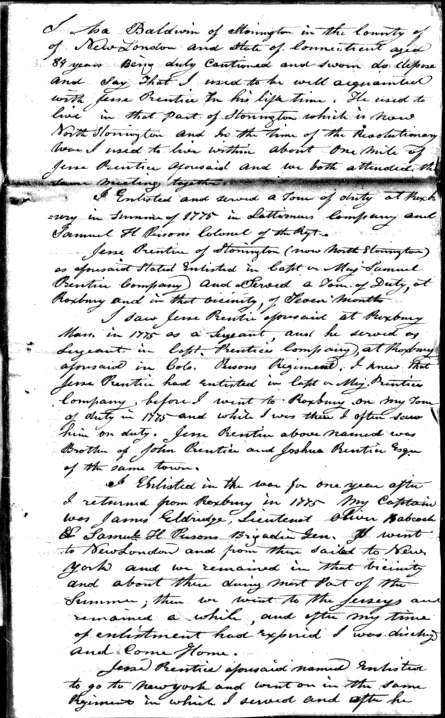 I Asa Baldwin of Stonington in the County of
of New London and State of Connecticut aged
84 years Being duly Cautioned and sworn do depose
and Say that I used to be well acquainted
with Jesse Prentice In his life time. He used to
live in that Part of Stonington which is now
North Stonington and In the time of the Revolutionary
War I used to live within about One Mile of
Jesse Prentice aforesaid and we both attended the
same meeting together.
I Enlisted and served a Tour of duty at Roxb
ury in Summer of 1775 in Company and
Samuel H Persons Colonel of the Regt.
Jesse Prentice of Stonington (now North Stonington)
as aforesaid Stated Enlisted in Capt or Maj Samuel
Prentice Company) and Served a Tour of Duty, at
Roxbury and in that vicinity, of Seven Months
I saw Jesse Prentice aforesaid at Roxbury
Mass. in 1775 as a Sergeant, and he served as
Sergeant in Capt. Prentices Company), at Roxbury
aforesaid in Colo. Persons Regiment. I knew that
Jesse Prentice had Enlisted in Capt or Maj. Prentices
Company, before I went to Roxbury on my Tour
of duty in 1775 and while I was there I often saw
him on duty. Jesse Prentice above named was
Brother of John Prentice and Joshua Prentice Esqr
of the same town.
I Enlisted in the war for one year after
I returned from Roxbury in 1775 My Captain
was James Eldridge, Lieutenant Oliver Babcock
& Samuel H Persons Brigadier Gen. I went
to New London and from there sailed to New
York and we remained in that vicinity
and about there during most Part of the
Summer, then we went to the Jerseys and
remained a while, and after my time
of enlistment had expired I was dischgd
and Come Home.
Jesse Prentice aforesaid named Enlisted
to go to New york and went on in the same
Regiment in which I served and after he